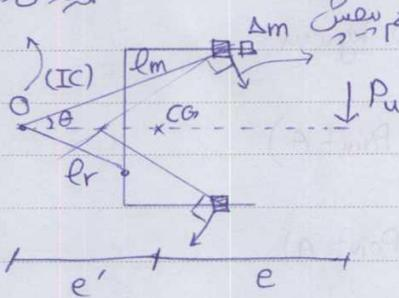 Δm
(IC)
lm
O
θ
CG
Pu
lr
e'
e